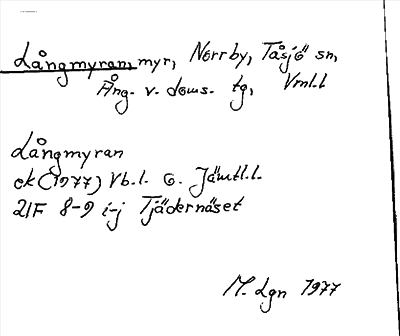 Långmyran, myr, Norrby, Tåsjö sn,
Ång. v. doms. tg, Vnl.l
Långmyran
ek (1977) Vb.l. o. Jämtl.l.
21F 8-9 i-j Tjädernäset
M. Lgn 1977